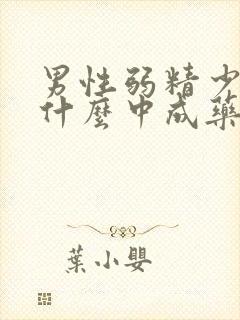 男性弱精少
什麼中成藥
葉小嬰